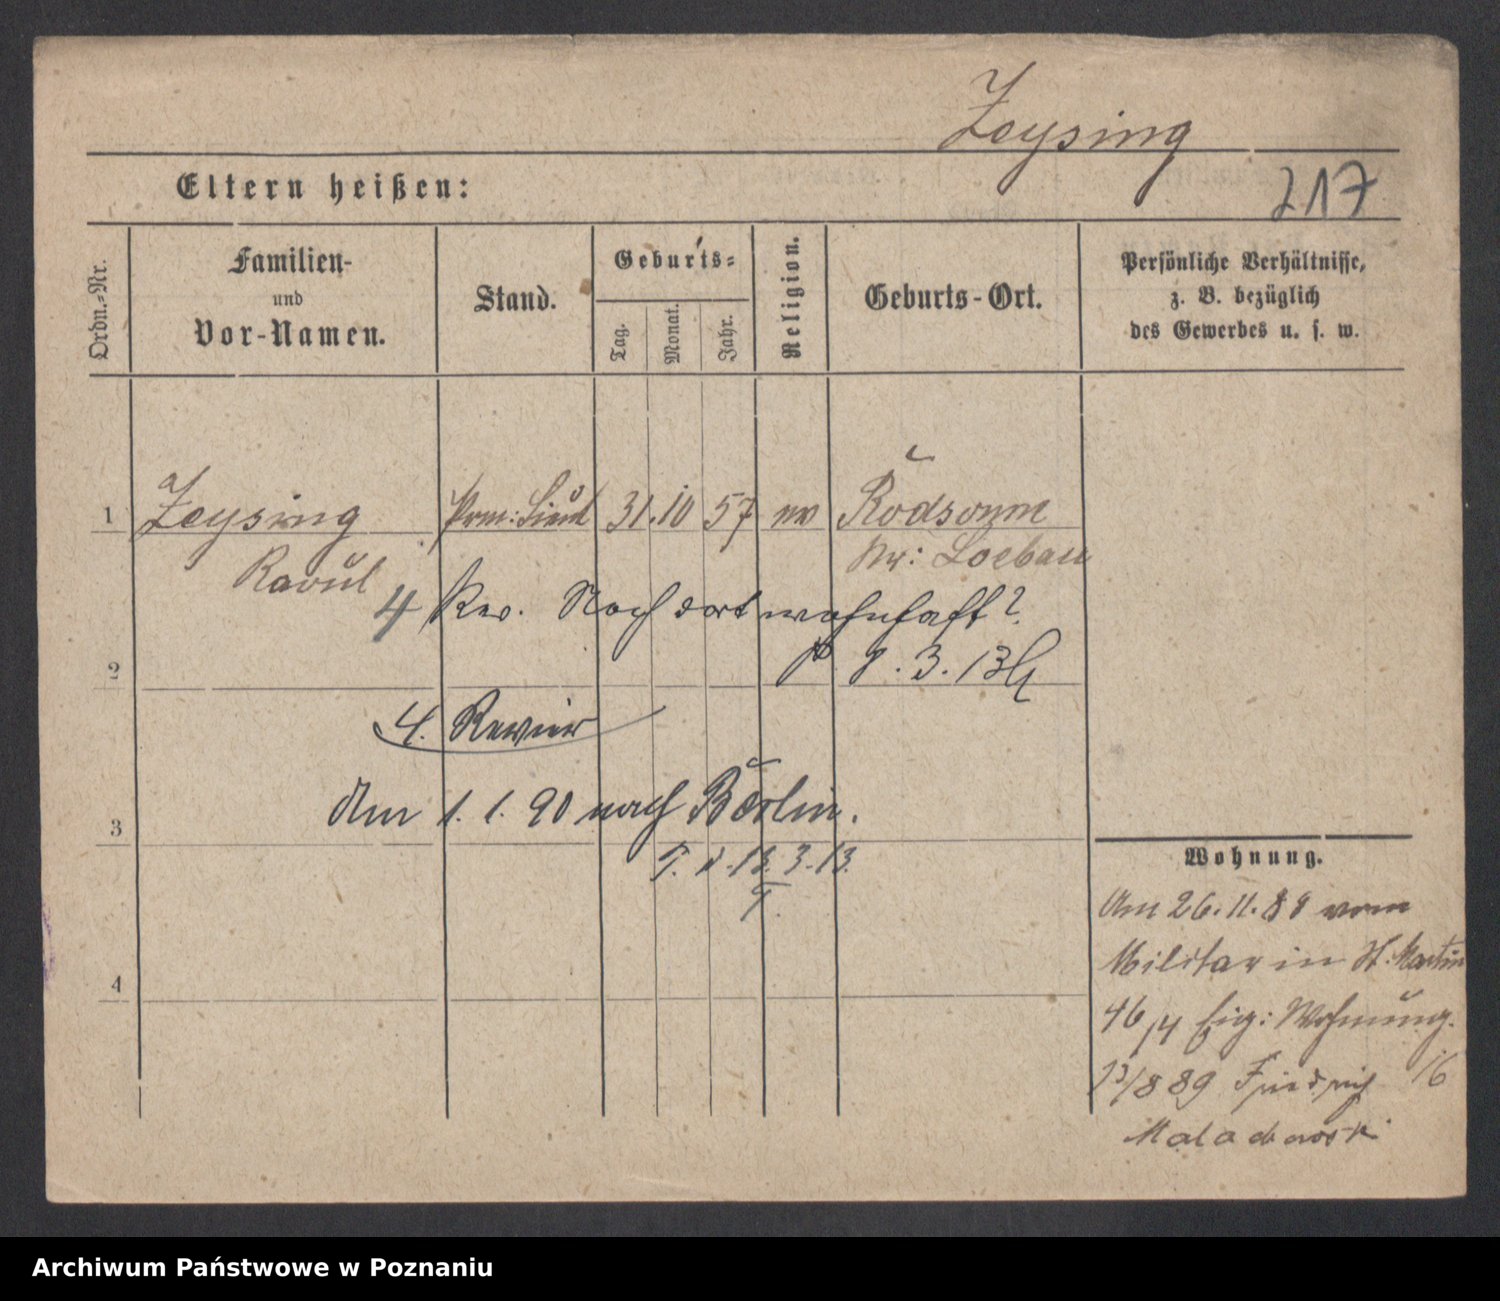 Zeysing
217
Eltern heißen:
Ordn.-Nr.
Familien-
und
Vor-Namen.
Stand.
Geburts-
Tag.
Monat.
Jahr.
Religion.
Geburts-Ort.
Persönliche Verhältnisse,
z. B. bezüglich
des Gewerbes u. s. w.
1 Zeysing Prm: Lieut 31. 10 57 ev Rodsonne
Raoul Kr: Loebau
4 Rev. Noch dort wohnhaft?
2
8. 3. 13
4. Revier
Am 1. 1. 90 nach Berlin.
3
3. 13.
4
Wohnung.
Am 26. 11. 88 vom
Militar in St. Martin
46/4 Eig: Wohnung.
89 Friedrich 16